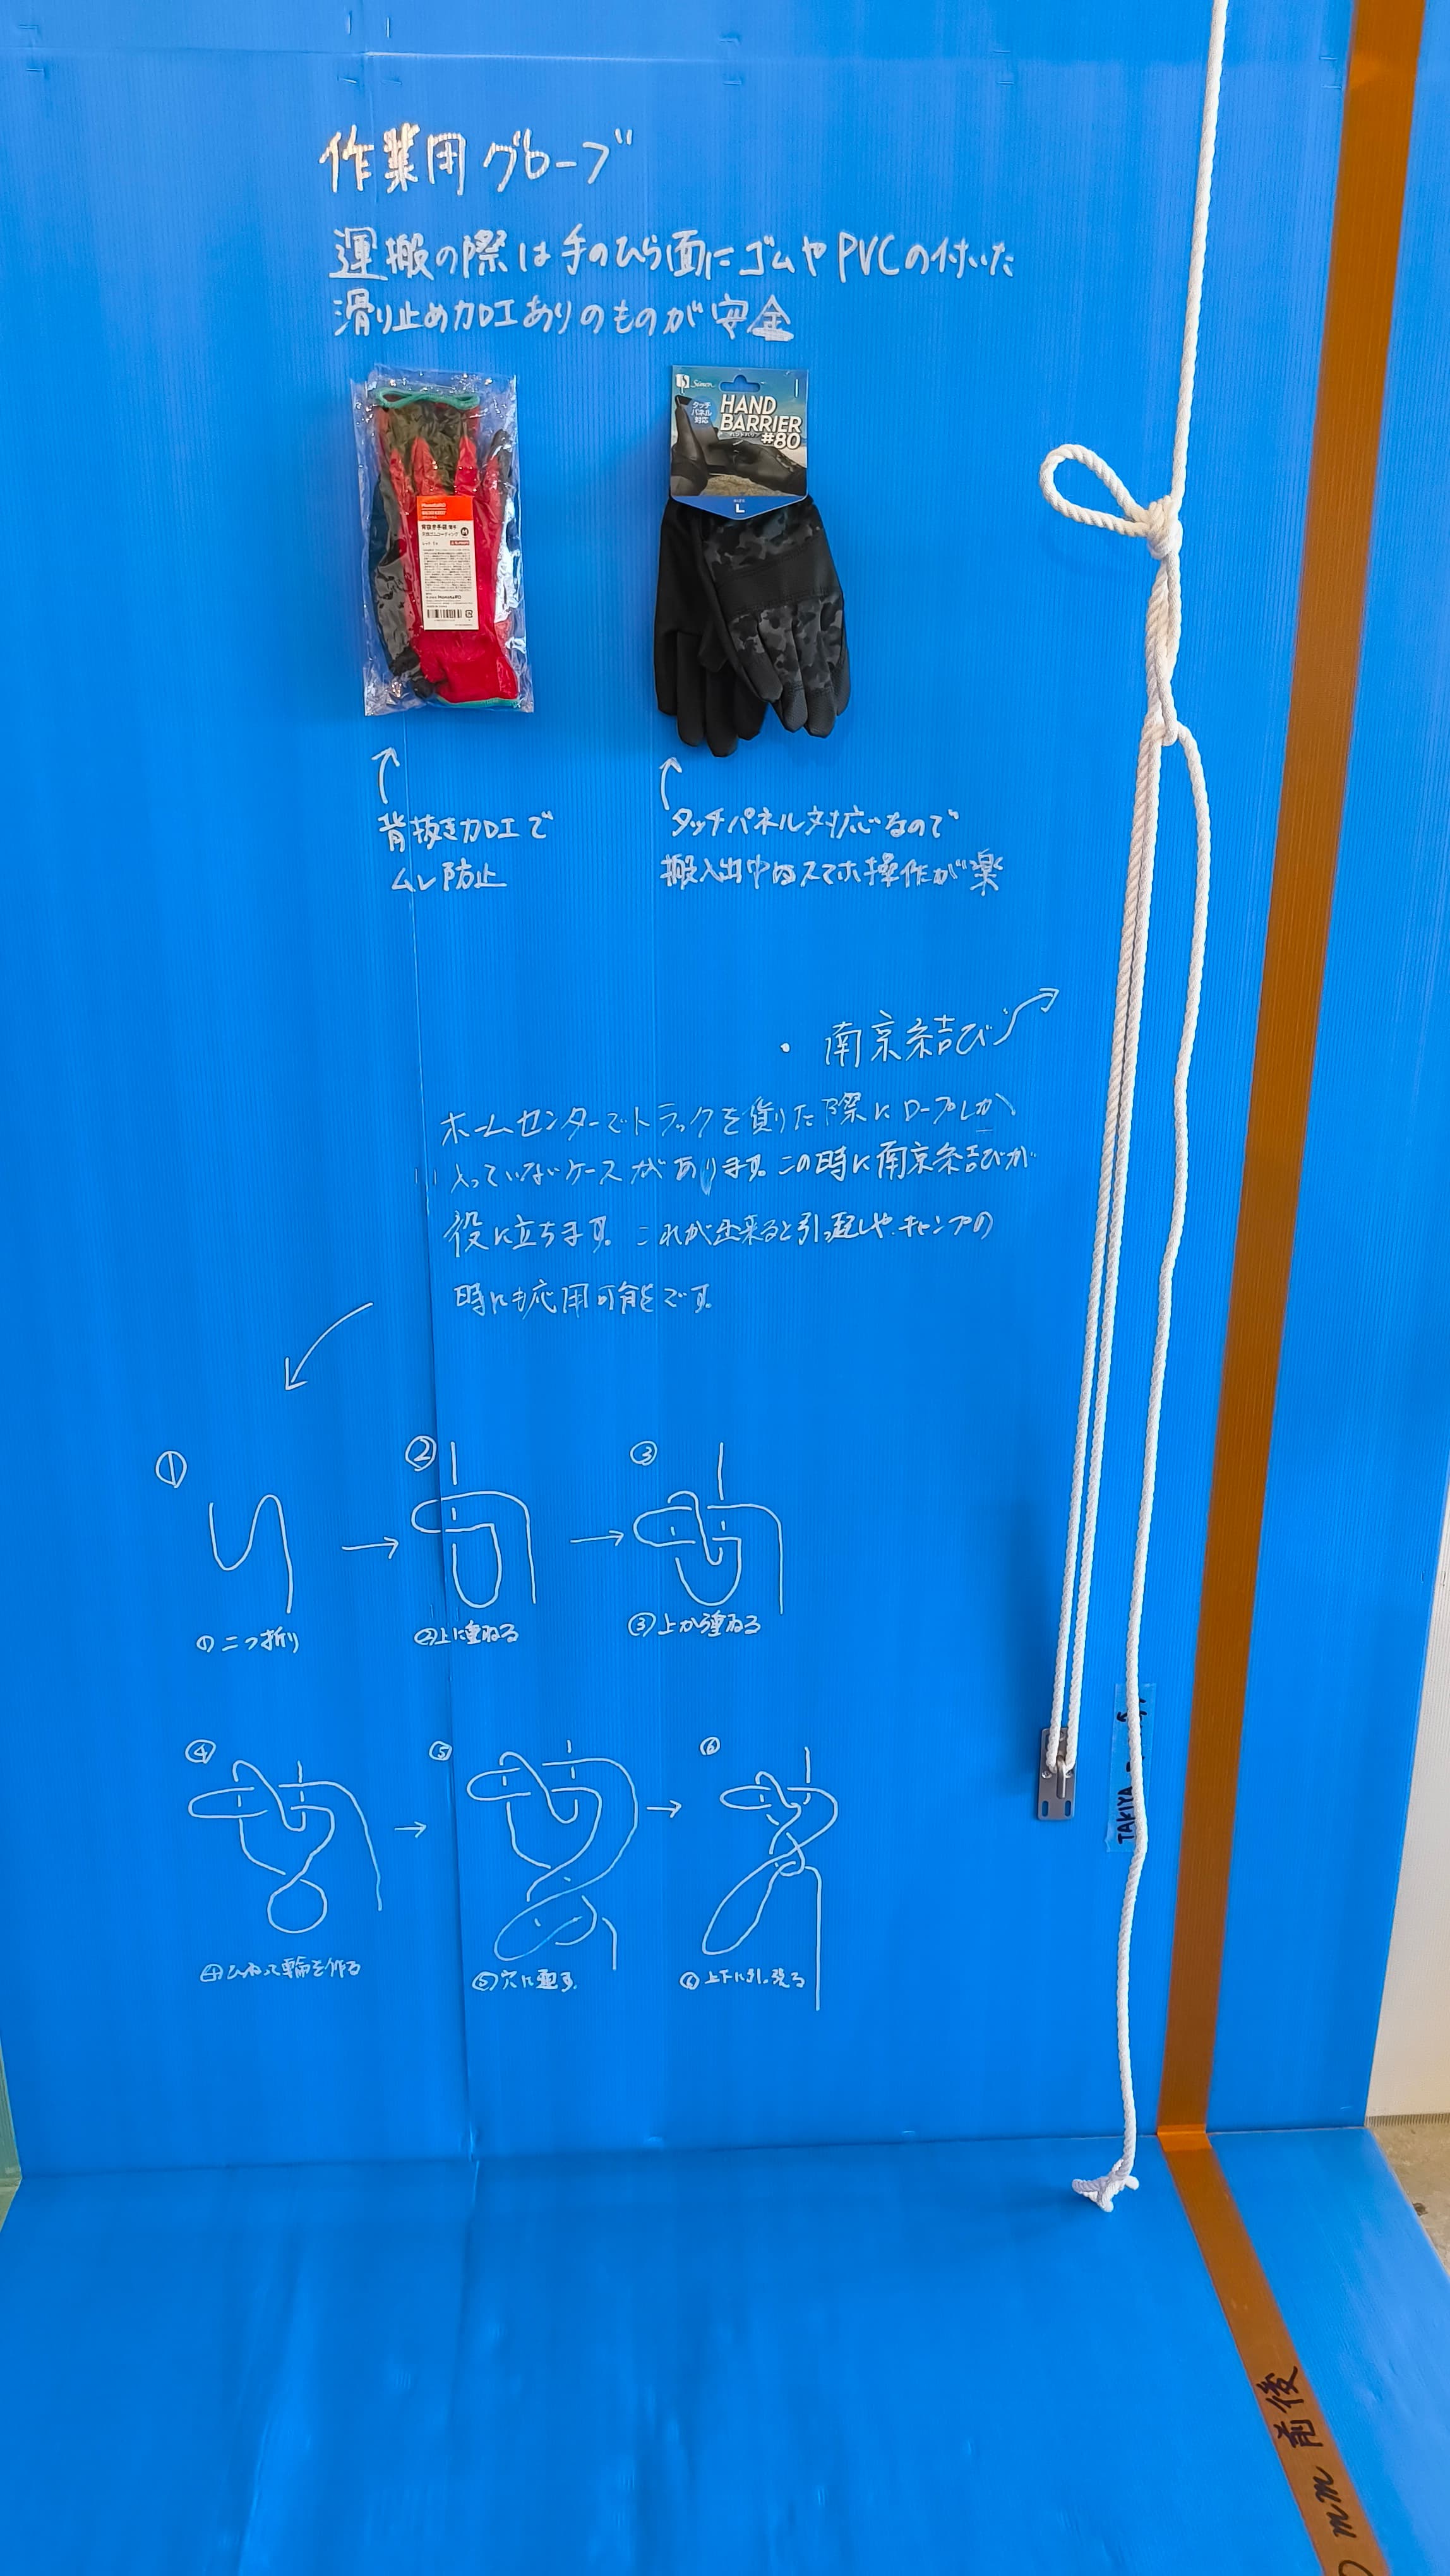 作業用グローブ
運搬の際は手のひら面にゴムやPVCの付いた
滑り止め加工ありのものが安全
Simon
タッチ
パネル
対応
HAND
BARRIER
#80
SIZE
L
背抜き手袋
天然ゴムコーティング
M
背抜き加工で
ムレ防止
タッチパネル対応なので
搬入出中のスマホ操作が楽
・南京結び
ホームセンターでトラックを借りた際にロープしか
入っていないケースがあります。この時に南京結びが
役に立ちます。これが出来ると引っ越しやキャンプの
時にも応用可能です。
① ② ③
①二つ折り
②上に重ねる
③上から重ねる
④ ⑤ ⑥
④ひねって輪を作る
⑤穴に通す
⑥上下に引っ張る
TAKIYA
mm 前後